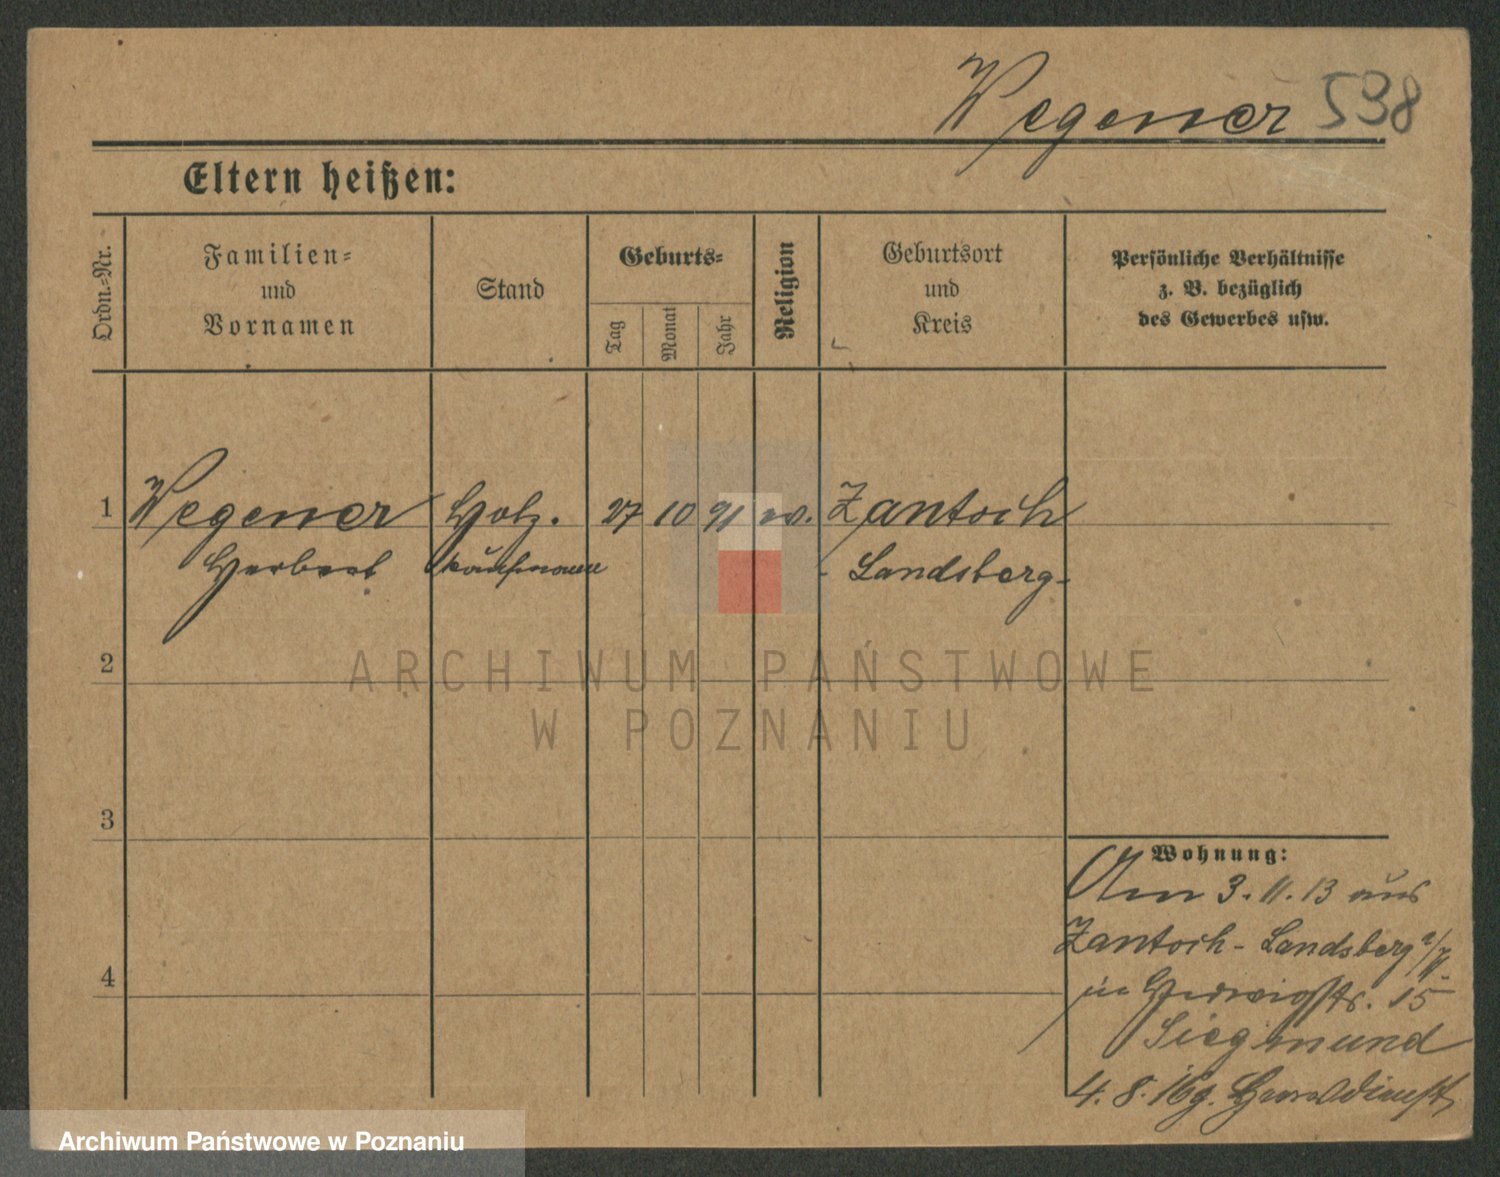 Wegener 538
Eltern heißen:
Ordn.-Nr.
Familien- und Vornamen
Stand
Geburts-
Tag
Monat
Jahr
Religion
Geburtsort und Kreis
Persönliche Verhältnisse
z. B. bezüglich
des Gewerbes usw.
1 Wegener Holz. 27 10 91 ev. Zantoch
Herbert kaufmann Landsberg
2
ARCHIWUM PAŃSTWOWE
W POZNANIU
3
Wohnung:
Am 3.11.13 aus
Zantoch - Landsberg a/W.
in Hedwigstr. 15
Siegmund
4
4. 8. 16 z.
Archiwum Państwowe w Poznaniu